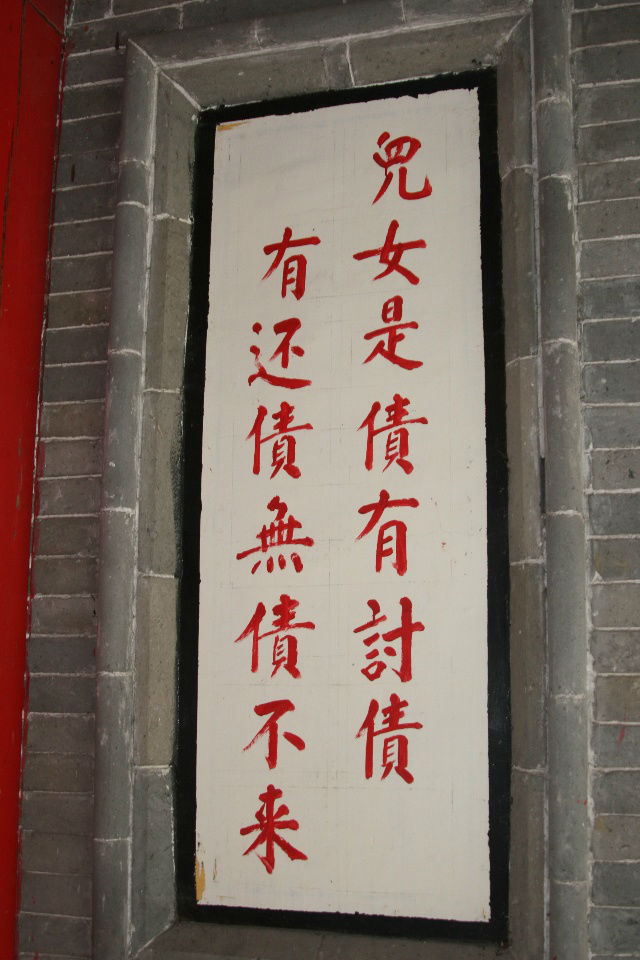 兒女是債有討債
有还債無債不来